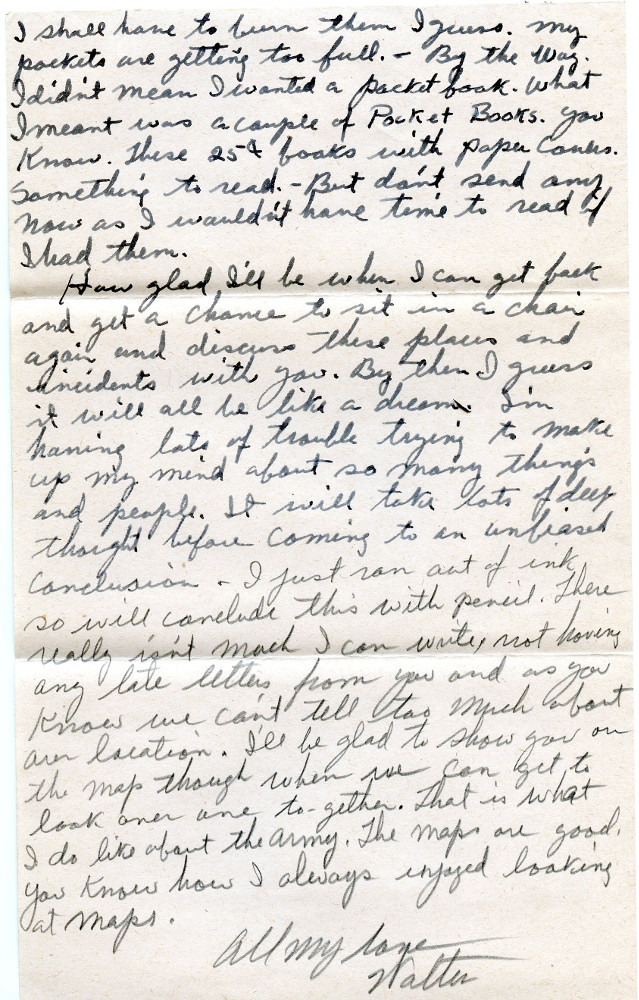 I shall have to burn them I guess. My
pockets are getting too full. - By the Way.
I didn't mean I wanted a pocketbook. What
I meant was a couple of Pocket Books. You
Know. These 25¢ books with paper Covers.
Something to read. - But don't send any
Now as I wouldn't have time to read if
I had them.
How glad I'll be when I can get back
and get a chance to sit in a chair
again and discuss these places and
incidents with you. By then I guess
it will all be like a dream. I'm
having lots of trouble trying to make
up my mind about so many things
and people. It will take lots of deep
thought before coming to an unbiased
conclusion - I just ran out of ink
so will conclude this with pencil. There
really isn't much I can write, not having
any late letters from you and as you
Know we can't tell too much about
our location. I'll be glad to show you on
the map though when we can get to
look over one to-gether. That is what
I do like about the army. The maps are good.
You Know how I always enjoyed looking
at maps.
All My love
Walter